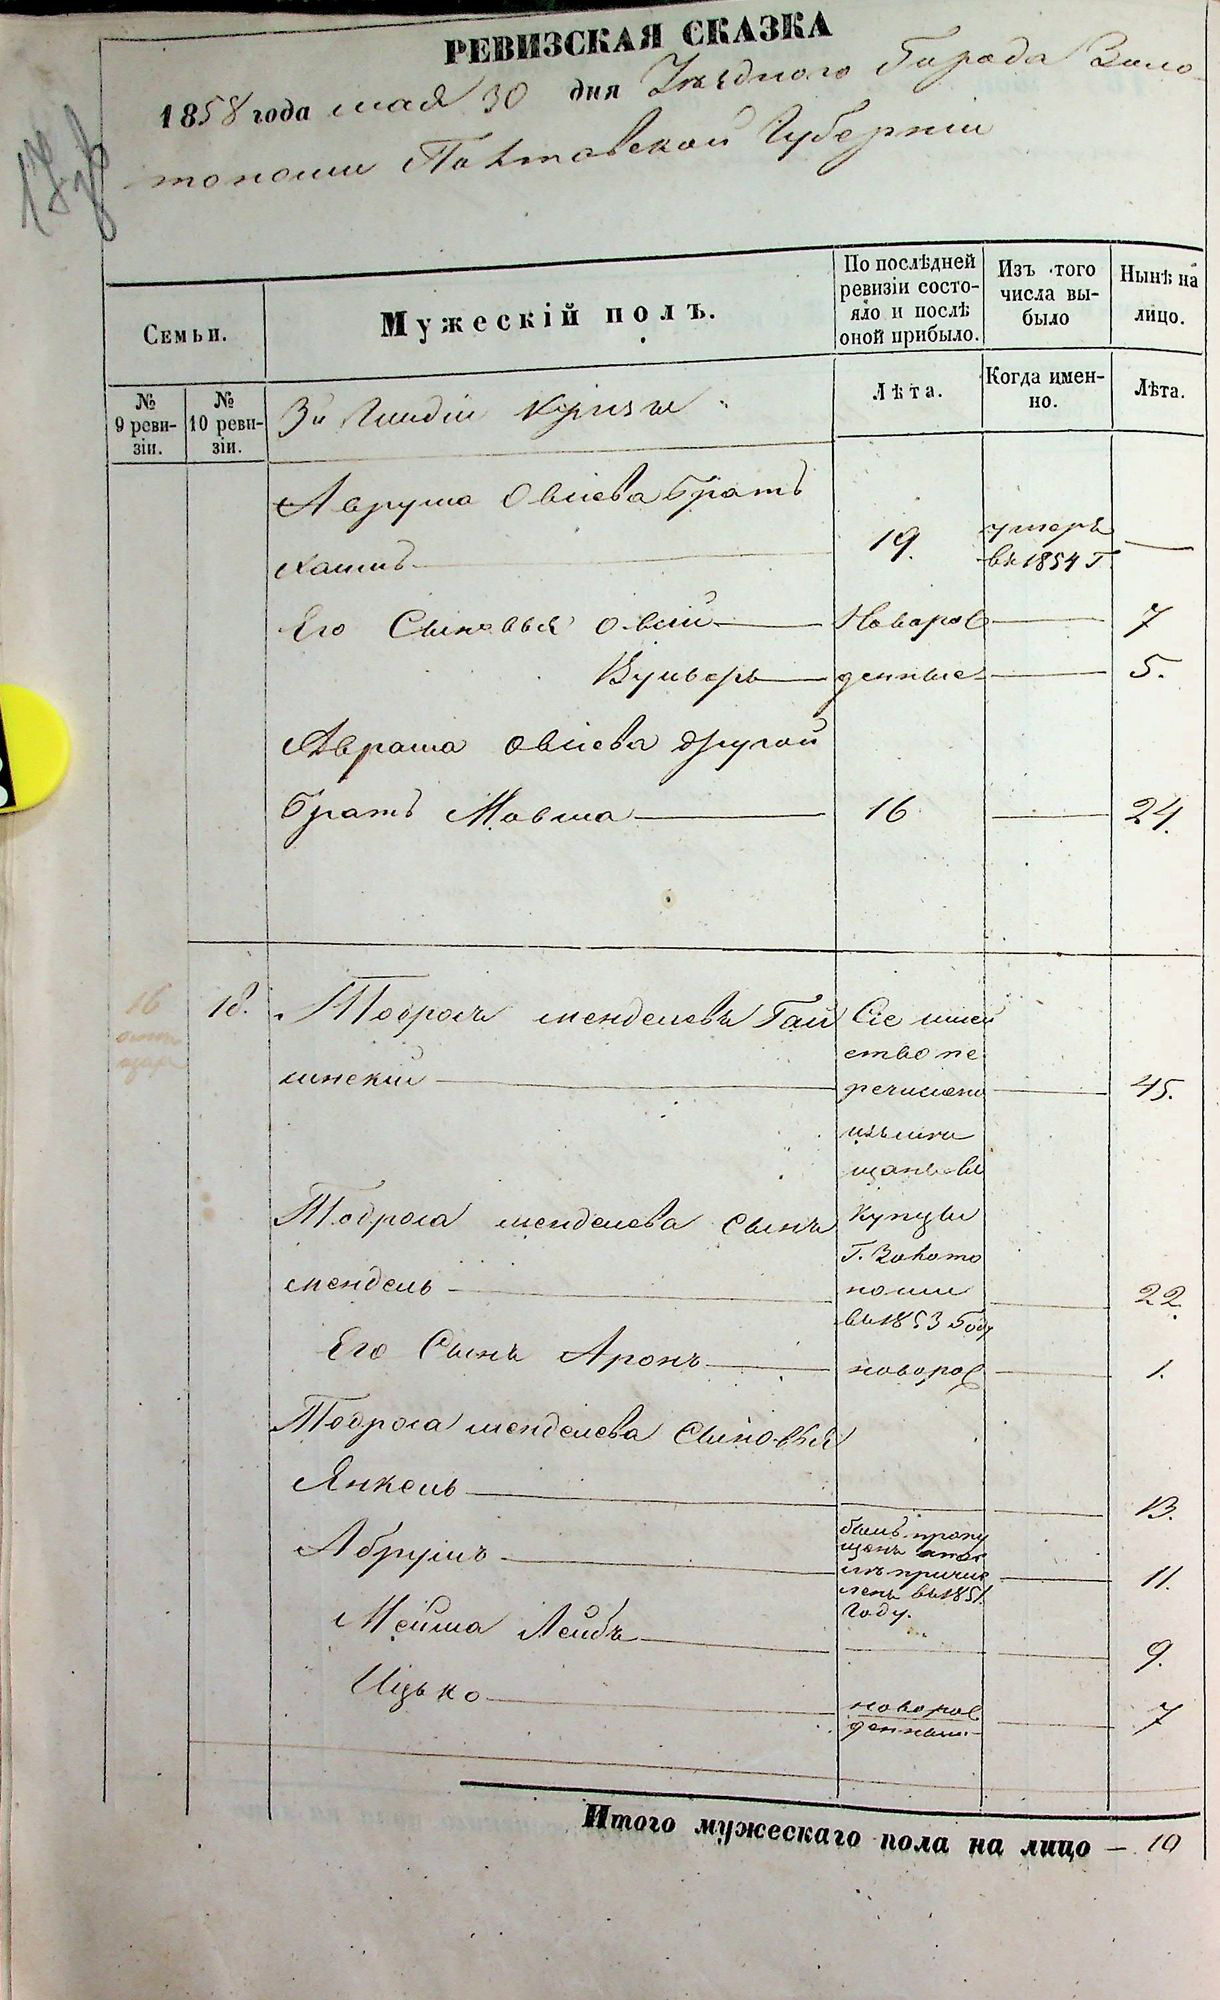 РЕВИЗСКАЯ СКАЗКА
1858 года мая 30 дня Уѣзднаго Города Золо-
тоноши Полтавской Губерніи
Семьи.
Мужескій полъ.
По послѣдней ревизіи состояло и послѣ оной прибыло.
Изъ того числа выбыло
Нынѣ на лицо.
№ 9 ревизіи.
№ 10 ревизіи.
3й Гильдіи Купцы
Лѣта.
Когда именно.
Лѣта.
Овсіева братъ
Хаимъ 19. умеръ в 1854 г.
Его Сыновья Овсій Новорож 7
Вульворь денные 5.
Авраша Овсіева другой
братъ Мовша 16 24.
16
18. Тодросъ Менделевъ Гай
линскій 45.
Сіе имей
ство пе
речислено
изъ мѣ
щанъ въ
купцы
г. Золото
ноши
въ 1853 году
Тодроса Менделева Сынъ
Мендель 22.
Его Сынъ Аронъ новорож 1.
Тодроса Менделева Сыновья
Янкель 13.
Абрумъ 11.
былъ пропу
щенъ
причис
ленъ въ 1851
году.
Мейша Лейбъ 9.
Ицько новорож
денный 7
Итого мужескаго пола на лицо — 10